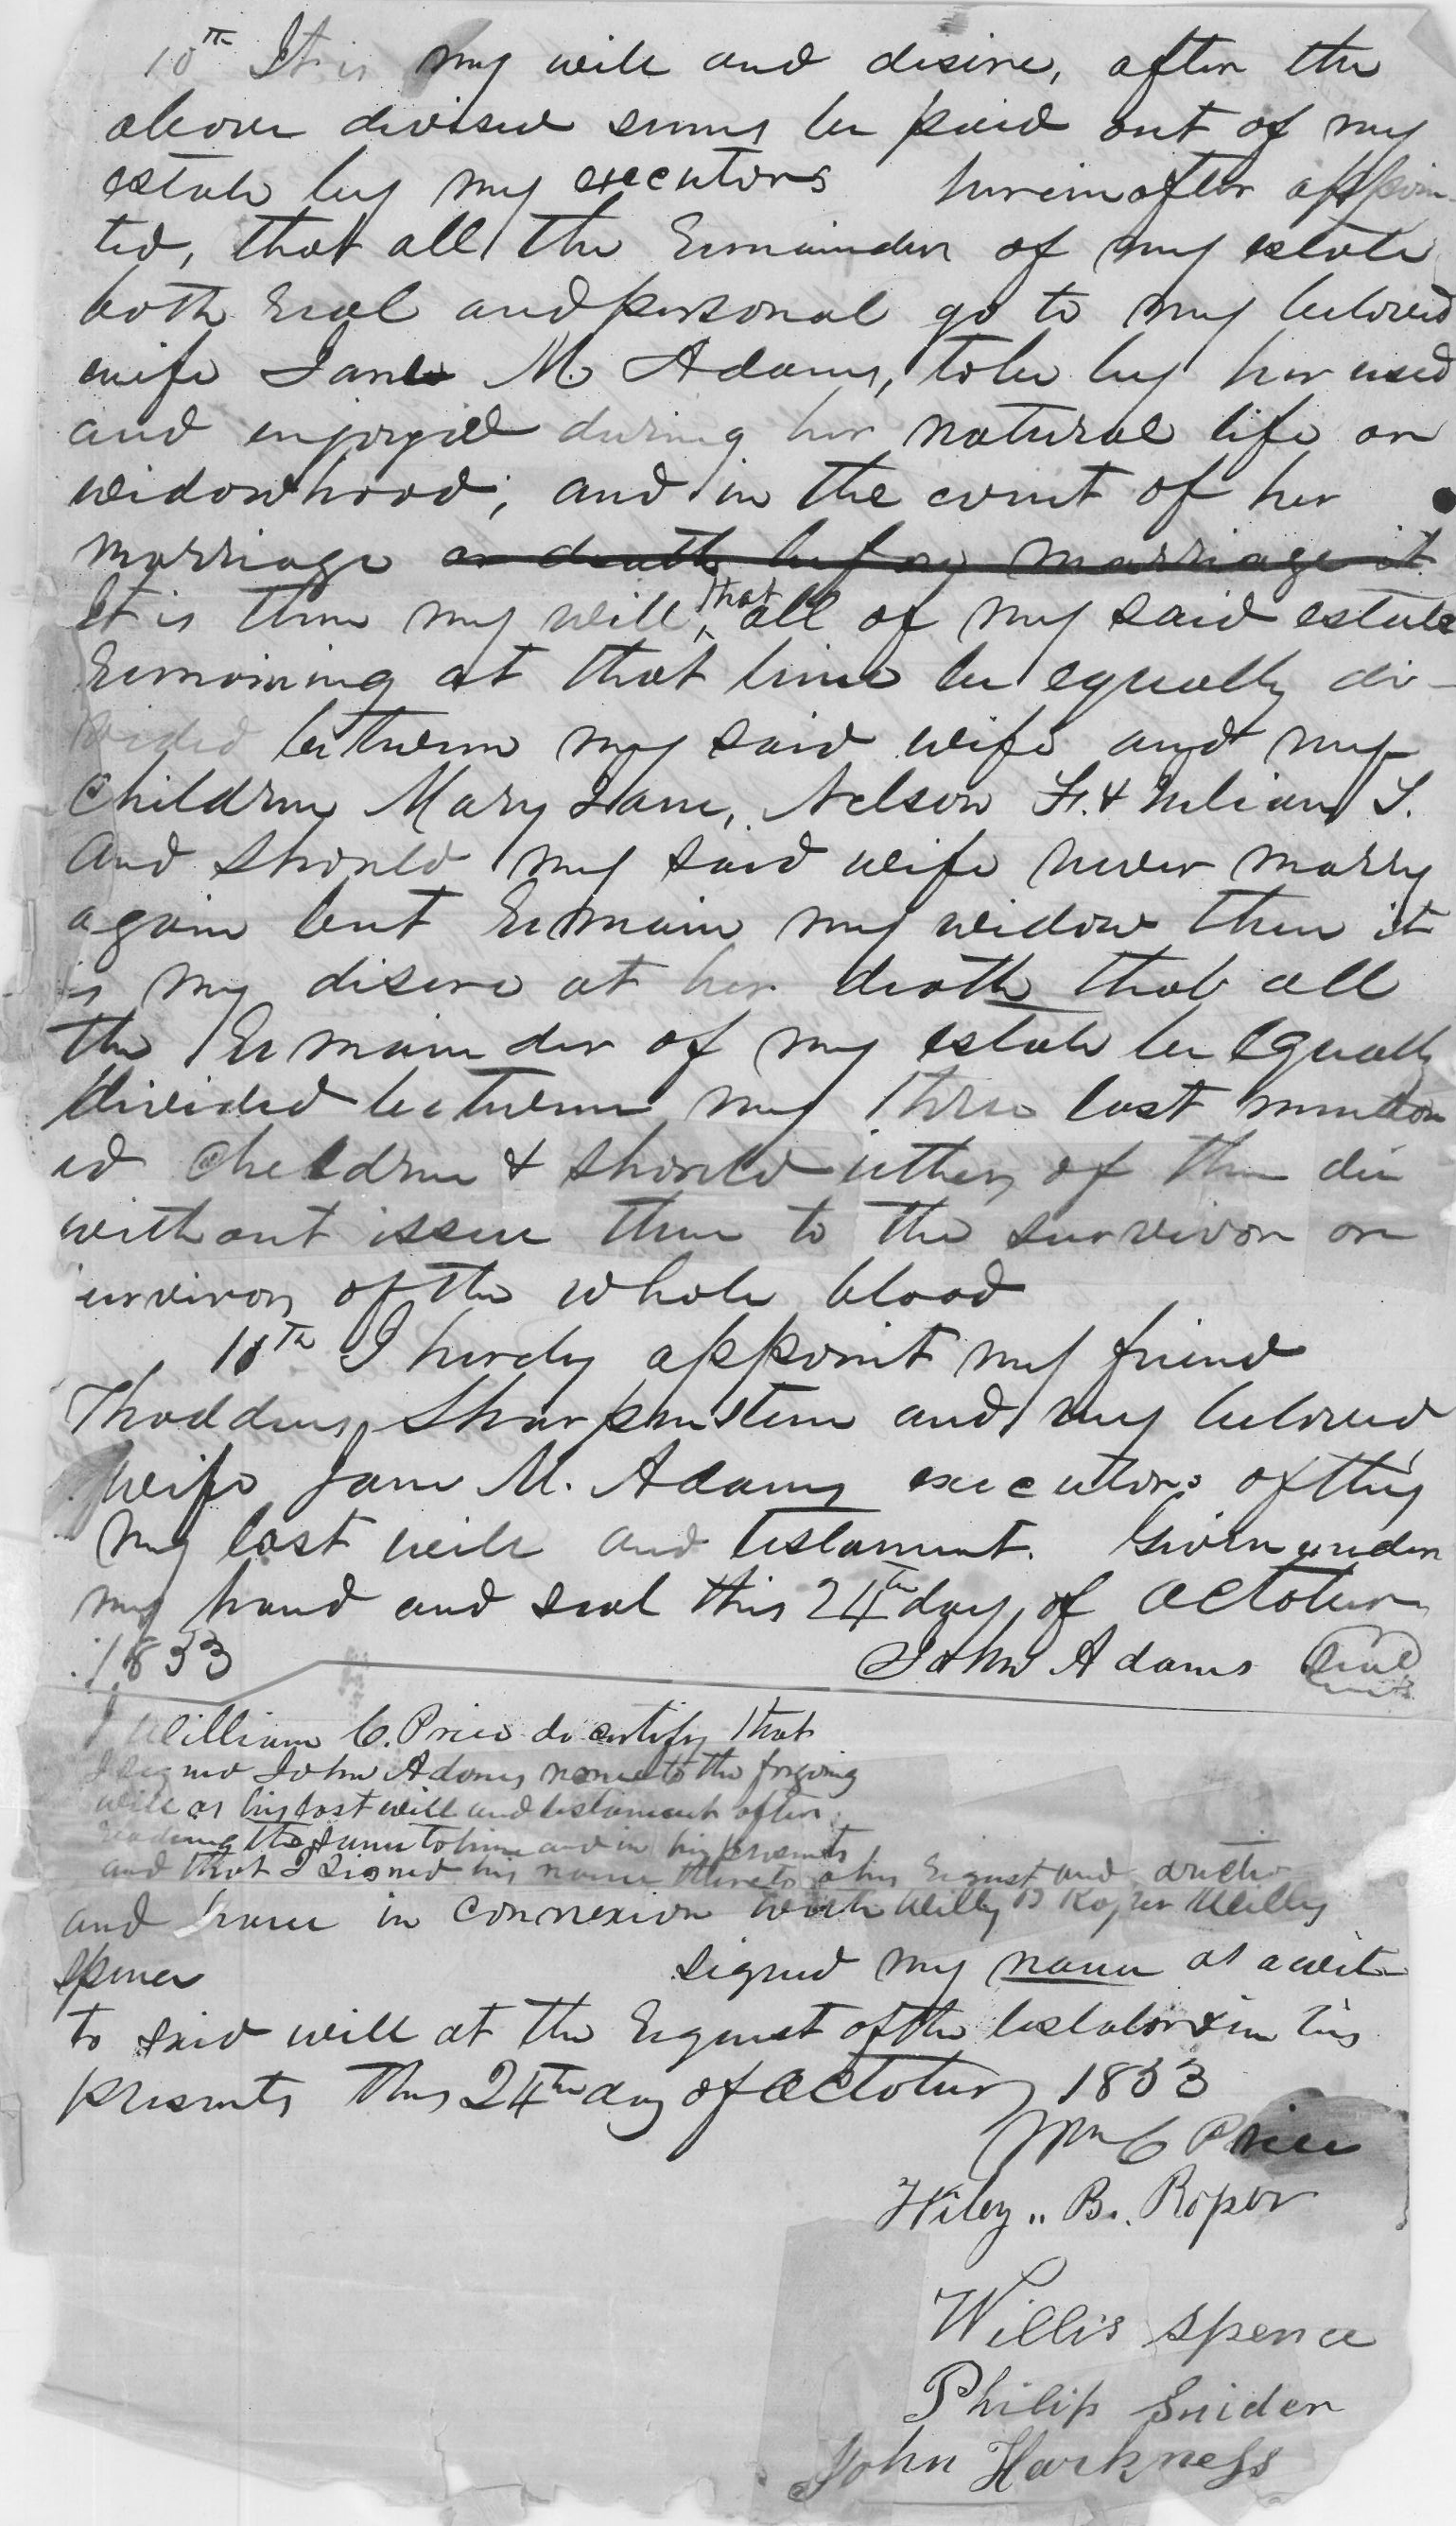 10th It is my will and desire, after the
above devised sums be paid out of my
estate by my executors hereinafter appoin-
ted, that all the remainder of my estate
both real and personal go to my beloved
wife Jane M. Adams, to be by her used
and enjoyed during her natural life or
widowhood; and in the event of her
marriage or death before marriage it
It is then my will, that all of my said estate
remaining at that time be equally di-
vided between my said wife and my
children Mary Jane, Nelson F. &
And should my said wife never marry
again but remain my widow then it
is my desire at her death that all
the remainder of my estate be equally
divided between my three last mention
ed children & should either of them die
without issue then to the survivor or
survivors of the whole blood
10th I hereby appoint my friend
Thaddeus Sharpenstein and my beloved
wife Jane M. Adams executors of this
my last will and testament. Given under
my hand and seal this 24th day of October
1833 John Adams Seal
I William C. Price do certify that
I signed John Adams name to the forgoing
will as his last will and testament after
reading the same to him and in his presents
and that I signed his name thereto at his request and
and have in connexion with Willy B Roper Willis
Spence signed my name as a wit
to said will at the request of the testator & in his
presents this 24th day of October 1833
Wm C Price
Wiley B. Roper
Willis Spence
Philip Snider
John Harkness